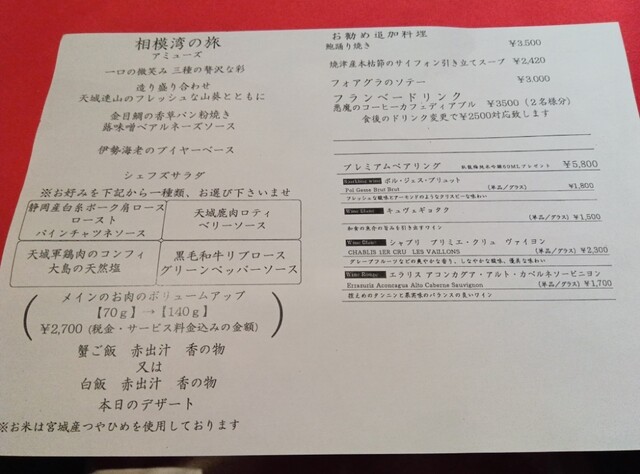 相模湾の旅
アミューズ
一口の微笑み 三種の贅沢な彩
造り盛り合わせ
天城連山のフレッシュな山葵とともに
金目鯛の香草パン粉焼き
蕗味噌ベアルネーズソース
伊勢海老のブイヤーベース
シェフズサラダ
※お好みを下記から一種類、お選び下さいませ
静岡産白糸ポーク肩ロース
ロースト
パインチャツネソース
天城鹿肉ロティ
ベリーソース
天城軍鶏肉のコンフィ
大島の天然塩
黒毛和牛リブロース
グリーンペッパーソース
メインのお肉のボリュームアップ
【70g】→【140g】
¥2,700(税金・サービス料金込みの金額)
蟹ご飯 赤出汁 香の物
又は
白飯 赤出汁 香の物
本日のデザート
※お米は宮城産つやひめを使用しております
お勧め追加料理
鮑踊り焼き ¥3.500
焼津産本枯節のサイフォン引き立てスープ ¥2,420
フォアグラのソテー ¥3.000
フランベードリンク
悪魔のコーヒーカフェディアブル ¥3500(2名様分)
食後のドリンク変更で¥2500対応致します
プレミアムペアリング ¥5,800
ポル・ジェス・ブリュット
Pol Gesse Brut Brut (単品/グラス) ¥1,800
フレッシュな酸味とアーモンドのようなクリスピーな味わい
Wine Blanc キュヴェギョタク (単品/グラス) ¥1,500
和食の魚介の旨みを引き出すワイン
Wine Blanc シャブリ プルミエ・クリュ ヴァイヨン
CHABLIS 1ER CRU LES VAILLONS (単品/グラス) ¥2,300
グレープフルーツなどの爽やかな香り、しなやかな酸味、優美な味わい
Wine Rouge エラリス アコンカグア・アルト・カベルネソービニヨン
Errazuriz Aconcagua Alto Cabernet Sauvignon (単品/グラス) ¥1,700
控えめのタンニンと果実味のバランスの良いワイン